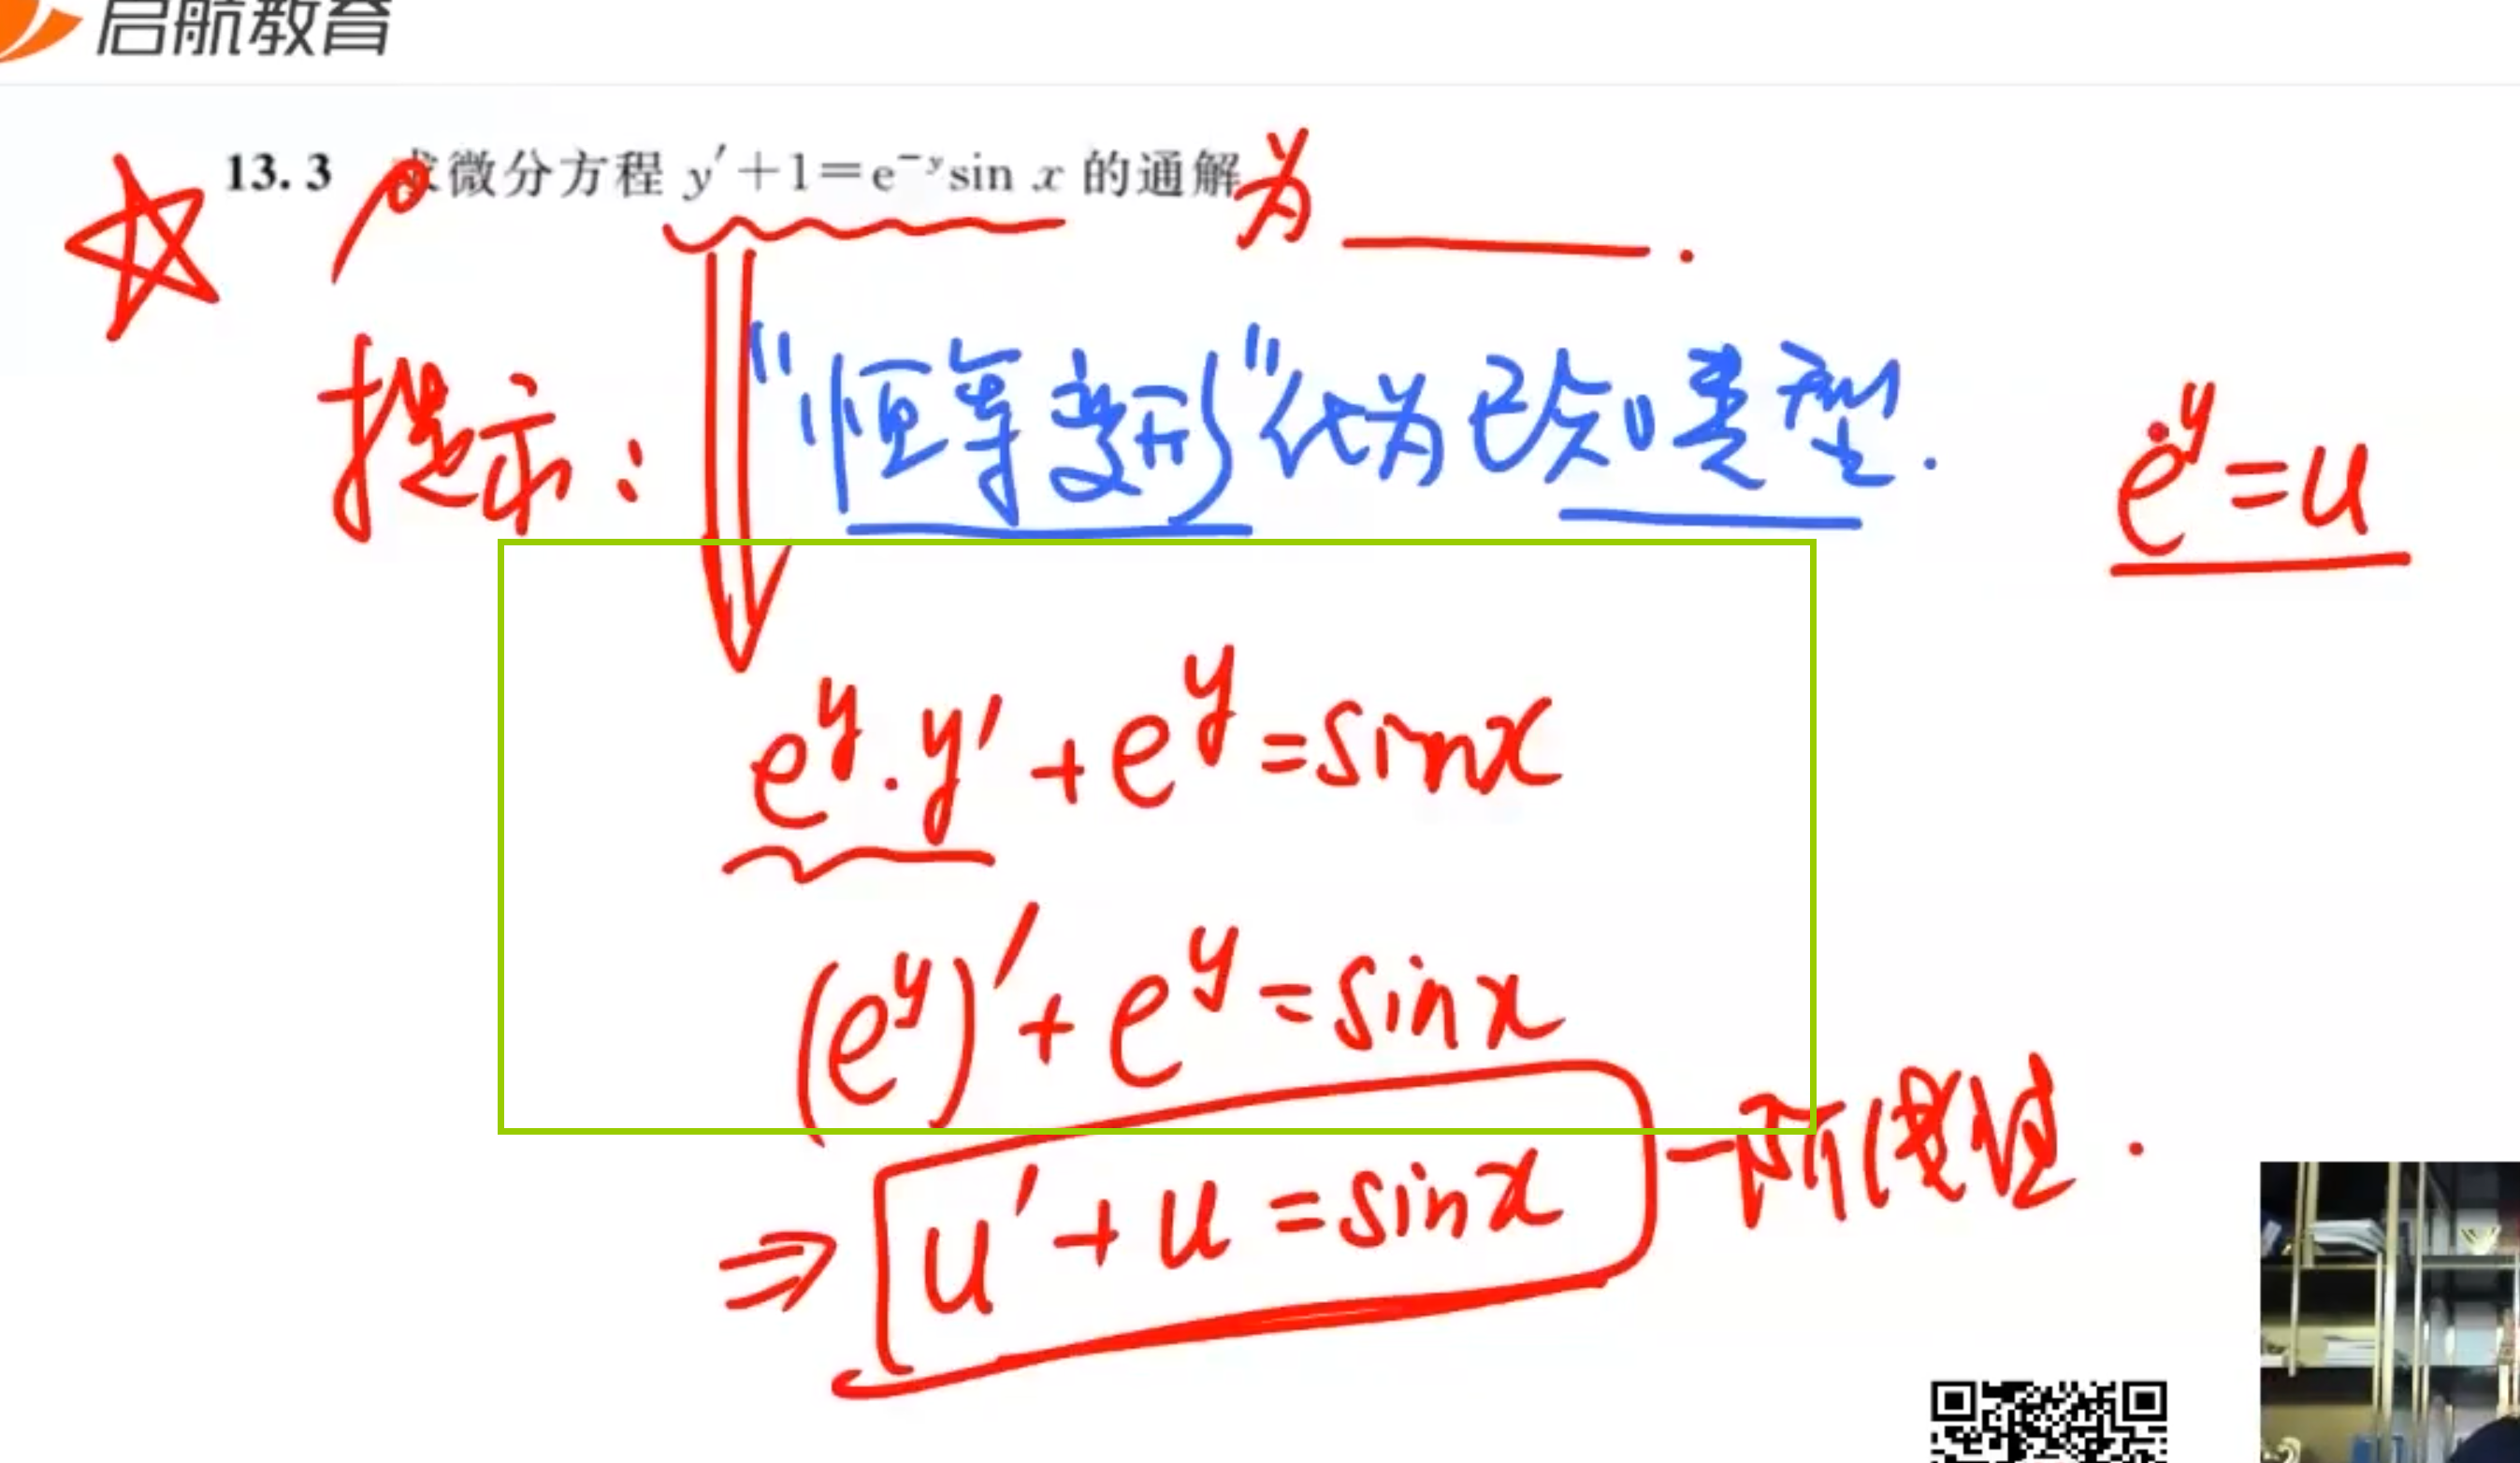 启航教育
13.3 求微分方程 y′+1=e⁻ʸsin x 的通解为______.
提示: "恒等变形"化为已知类型.
eʸ=u
eʸ·y′+eʸ=sinx
(eʸ)′+eʸ=sinx
⇒ u′+u=sinx 一阶线性.